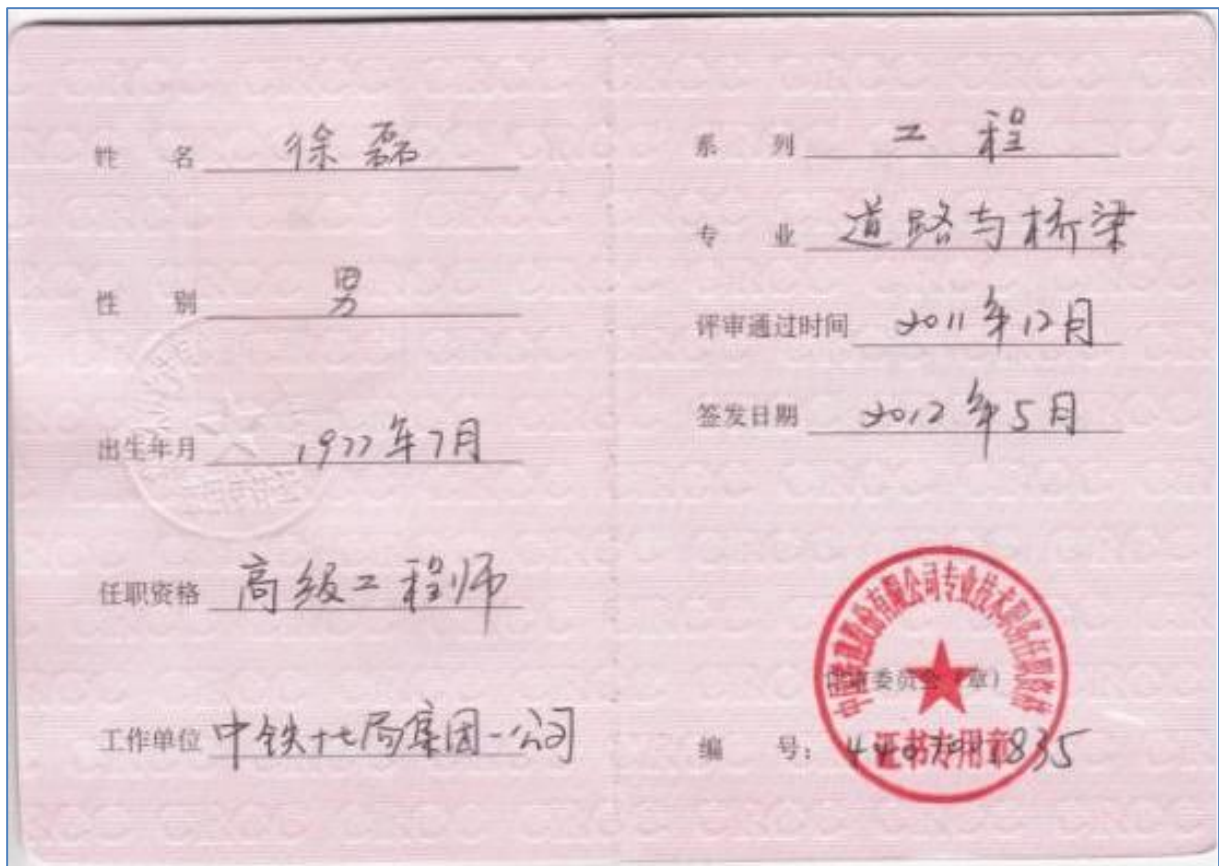 姓 名 徐磊
性 别 男
出生年月 1977年7月
任职资格 高级工程师
工作单位 中铁十七局集团一公司
系 列 工程
专 业 道路与桥梁
评审通过时间 2011年12月
签发日期 2012年5月
中国铁建股份有限公司专业技术职务任职资格
评审委员会（章）
证书专用章
编 号：